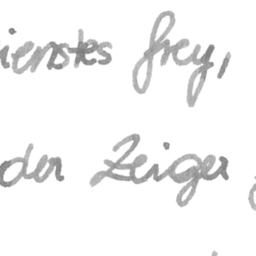 ienstes frey,
der Zeiger